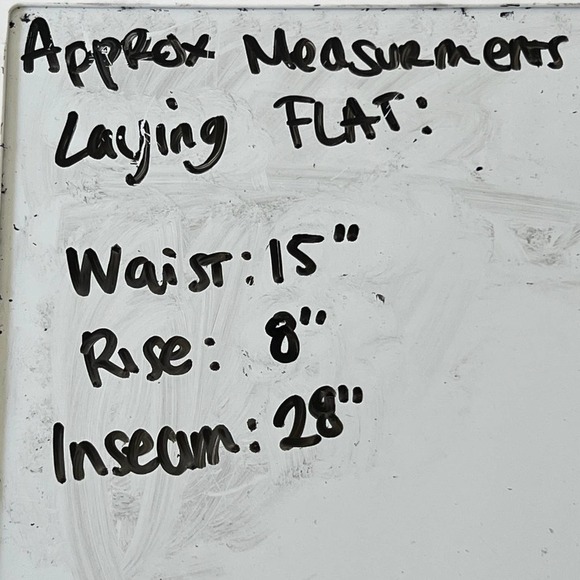 Approx Measurments
Laying FLAT:
Waist: 15"
Rise: 8"
Inseam: 28"